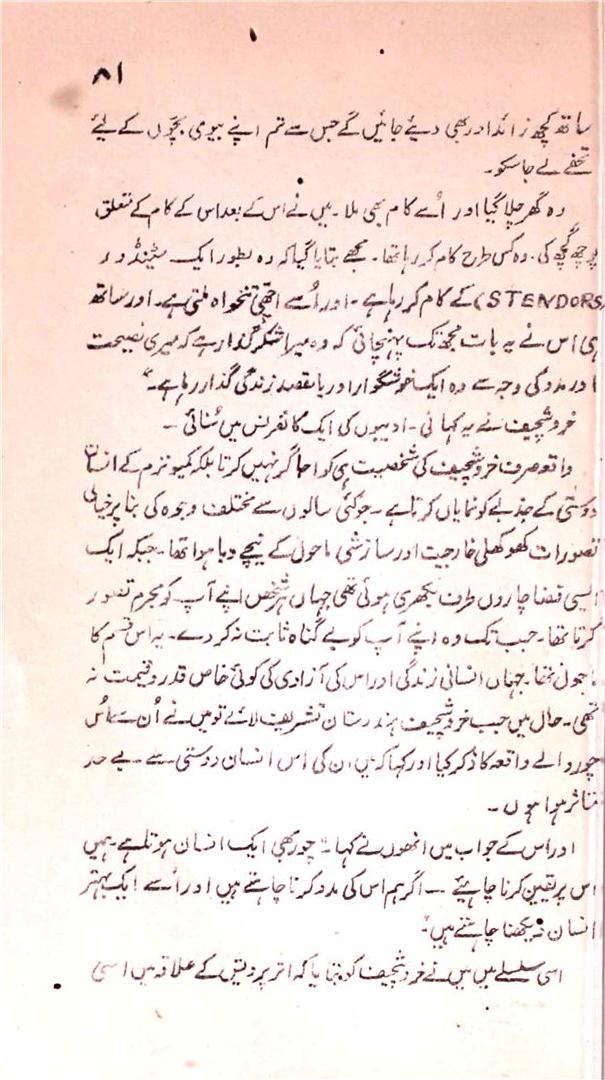 ۸۱
ساتھ کچھ زائد اور بھی دیئے جائیں گے جس سے تم اپنے بیوی بچوں کے لئے
تحفے لے جا سکو۔
وہ گھر چلا گیا اور اُسے کام بھی ملا۔ میں نے اس کے بعد اس کے کام کے متعلق
پوچھ گچھ کی۔ وہ کس طرح کام کر رہا تھا۔ مجھے بتایا گیا کہ وہ بطور ایک سٹینڈور
(STENDORS) کے کام کر رہا ہے۔ اور اُسے اچھی تنخواہ ملتی ہے۔ اور ساتھ
ہی اس نے یہ بات مجھ تک پہنچائی کہ وہ میرا شکر گذار ہے کہ میری نصیحت
اور مدد کی وجہ سے وہ ایک خوشگوار اور بامقصد زندگی گذار رہا ہے۔"
خروشچیف نے یہ کہانی۔ ادیبوں کی ایک کانفرنس میں سُنائی۔
واقعہ صرف خروشچیف کی شخصیت ہی کو اجاگر نہیں کرتا بلکہ کمیونزم کے انسان
دوستی کے جذبے کو نمایاں کرتا ہے۔ جو کئی سالوں سے مختلف وجوہ کی بنا پر خیالی
تصورات کھوکھلی خارجیت اور سازشی ماحول کے نیچے دبا ہوا تھا۔ جبکہ ایک
ایسی فضا چاروں طرف بکھری ہوئی تھی جہاں ہر شخص اپنے آپ کو مجرم تصور
کرتا تھا۔ جب تک وہ اپنے آپ کو بے گناہ ثابت نہ کر دے۔ یہ اس قسم کا
ماحول تھا۔ جہاں انسانی زندگی اور اس کی آزادی کی کوئی خاص قدر و قیمت نہ
تھی۔ حال میں جب خروشچیف ہندرستان تشریف لائے تو میں نے اُن سے اُس
چور والے واقعہ کا ذکر کیا اور کہا کہ میں ان کی اس انسان دوستی سے بے حد
متاثر ہوا ہوں۔
اور اس کے جواب میں انھوں نے کہا۔" چور بھی ایک انسان ہوتا ہے۔ ہمیں
اس پر یقین کرنا چاہیئے۔ اگر ہم اس کی مدد کرنا چاہتے ہیں اور اُسے ایک بہتر
انسان دیکھنا چاہتے ہیں۔"
اسی سلسلے میں میں نے خروشچیف کو بتایا کہ اتر پردیش کے علاقہ میں اسی